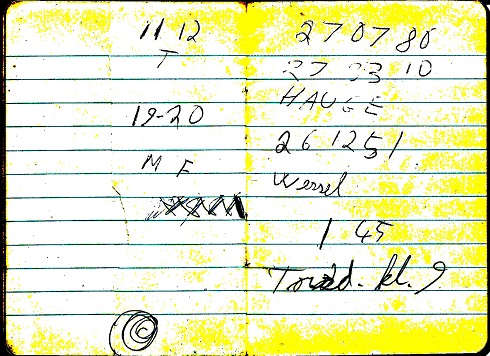 11 12
T
19-20
M F
©
27 07 80
27 03 10
HAUGE
26 12 51
Wessel
1 45
kl. 9